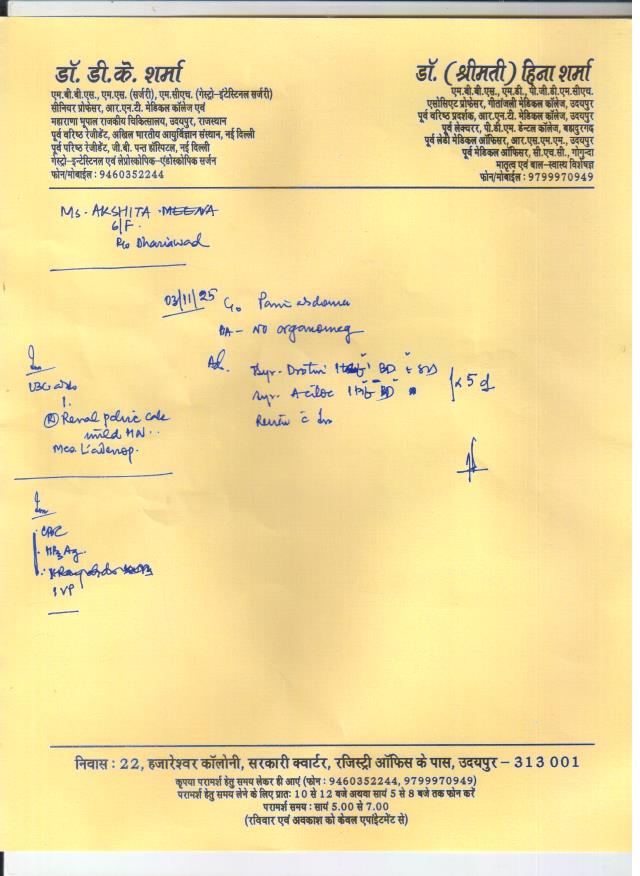 डॉ. डी.के. शर्मा
एम.बी.बी.एस., एम.एस. (सर्जरी), एम.सीएच. (गेस्ट्रो-इंटेस्टिनल सर्जरी)
सीनियर प्रोफेसर, आर.एन.टी. मेडिकल कॉलेज एवं
महाराणा भूपाल राजकीय चिकित्सालय, उदयपुर, राजस्थान
पूर्व वरिष्ठ रेजीडेंट, अखिल भारतीय आयुर्विज्ञान संस्थान, नई दिल्ली
पूर्व वरिष्ठ रेजीडेंट, जी.बी. पन्त हॉस्पिटल, नई दिल्ली
गेस्ट्रो-इन्टेस्टिनल एवं लेप्रोस्कोपिक-एंडोस्कोपिक सर्जन
फोन/मोबाईल : 9460352244
डॉ. (श्रीमती) हिना शर्मा
एम.बी.बी.एस., एम.डी., पी.जी.डी.एम.सीएच.
एसोसिएट प्रोफेसर, गीतांजली मेडिकल कॉलेज, उदयपुर
पूर्व वरिष्ठ प्रदर्शक, आर.एन.टी. मेडिकल कॉलेज, उदयपुर
पूर्व लेक्चरर, पी.डी.एम. डेन्टल कॉलेज, बहादुरगढ़
पूर्व लेडी मेडिकल ऑफिसर, आर.एस.एम.एम., उदयपुर
पूर्व मेडिकल ऑफिसर, सी.एच.सी., गोगुन्दा
मातृत्व एवं बाल-स्वास्थ्य विशेषज्ञ
फोन/मोबाईल : 9799970949
Ms. AKSHITA MEENA
6/F.
R/o Dhariawad
03/11/25 C/o Pain abdomen
PA - NO organomeg
Adv.
Syr. BD
Syr. Aciloc BD x 5 d
Review c Inv
Inv
USG abdo
1.
(R) Renal pelvic calc
mild HN..
Mes. L'adenop.
Inv
CBC
IVP
निवास : 22, हजारेश्वर कॉलोनी, सरकारी क्वार्टर, रजिस्ट्री ऑफिस के पास, उदयपुर – 313 001
कृपया परामर्श हेतु समय लेकर ही आएं (फोन : 9460352244, 9799970949)
परामर्श हेतु समय लेने के लिए प्रातः 10 से 12 बजे अथवा सायं 5 से 8 बजे तक फोन करें
परामर्श समय : सायं 5.00 से 7.00
(रविवार एवं अवकाश को केवल एपॉइंटमेंट से)